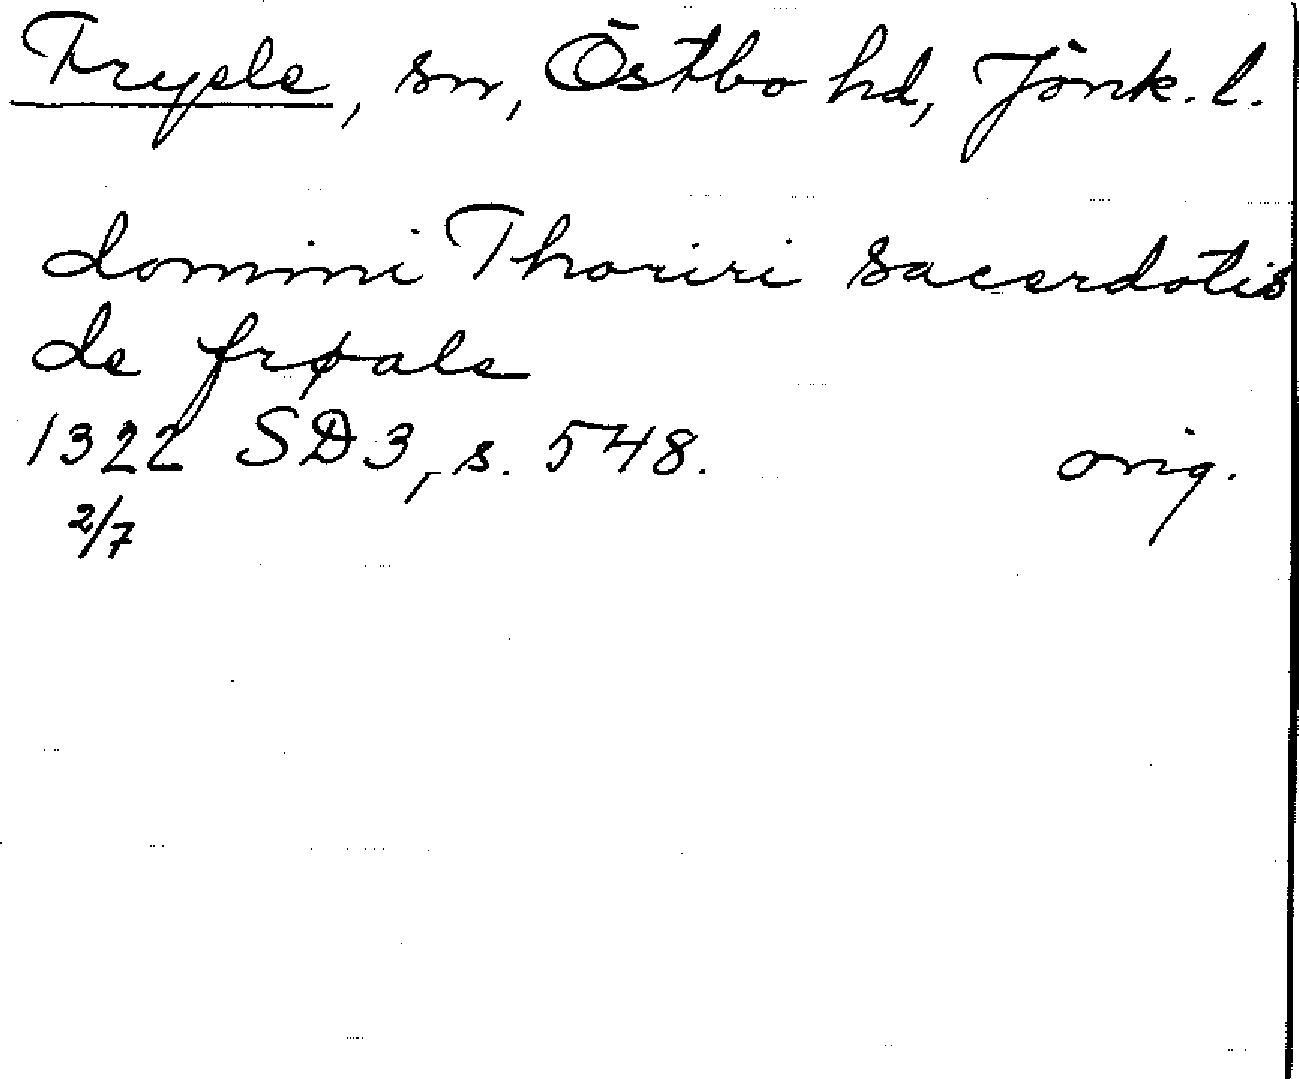 Fryele, sn, Östbo hd, Jönk. l.
domini Thoriri sacerdotis
de frøale
1322 SD 3, s. 548. orig.
2/7